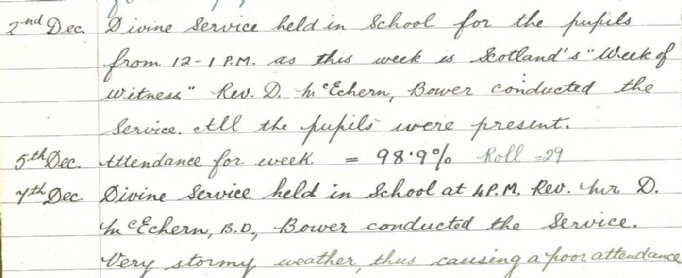 2nd Dec. Divine Service held in School for the pupils
from 12-1 P.M. as this week is Scotland's "Week of
Witness" Rev. D. McEchern, Bower conducted the
Service. All the pupils were present.
5th Dec. Attendance for week = 98.9% Roll = 29
7th Dec Divine Service held in School at 4 P.M. Rev. Mr D.
McEchern, B.D., Bower conducted the Service.
Very stormy weather, thus causing a poor attendance